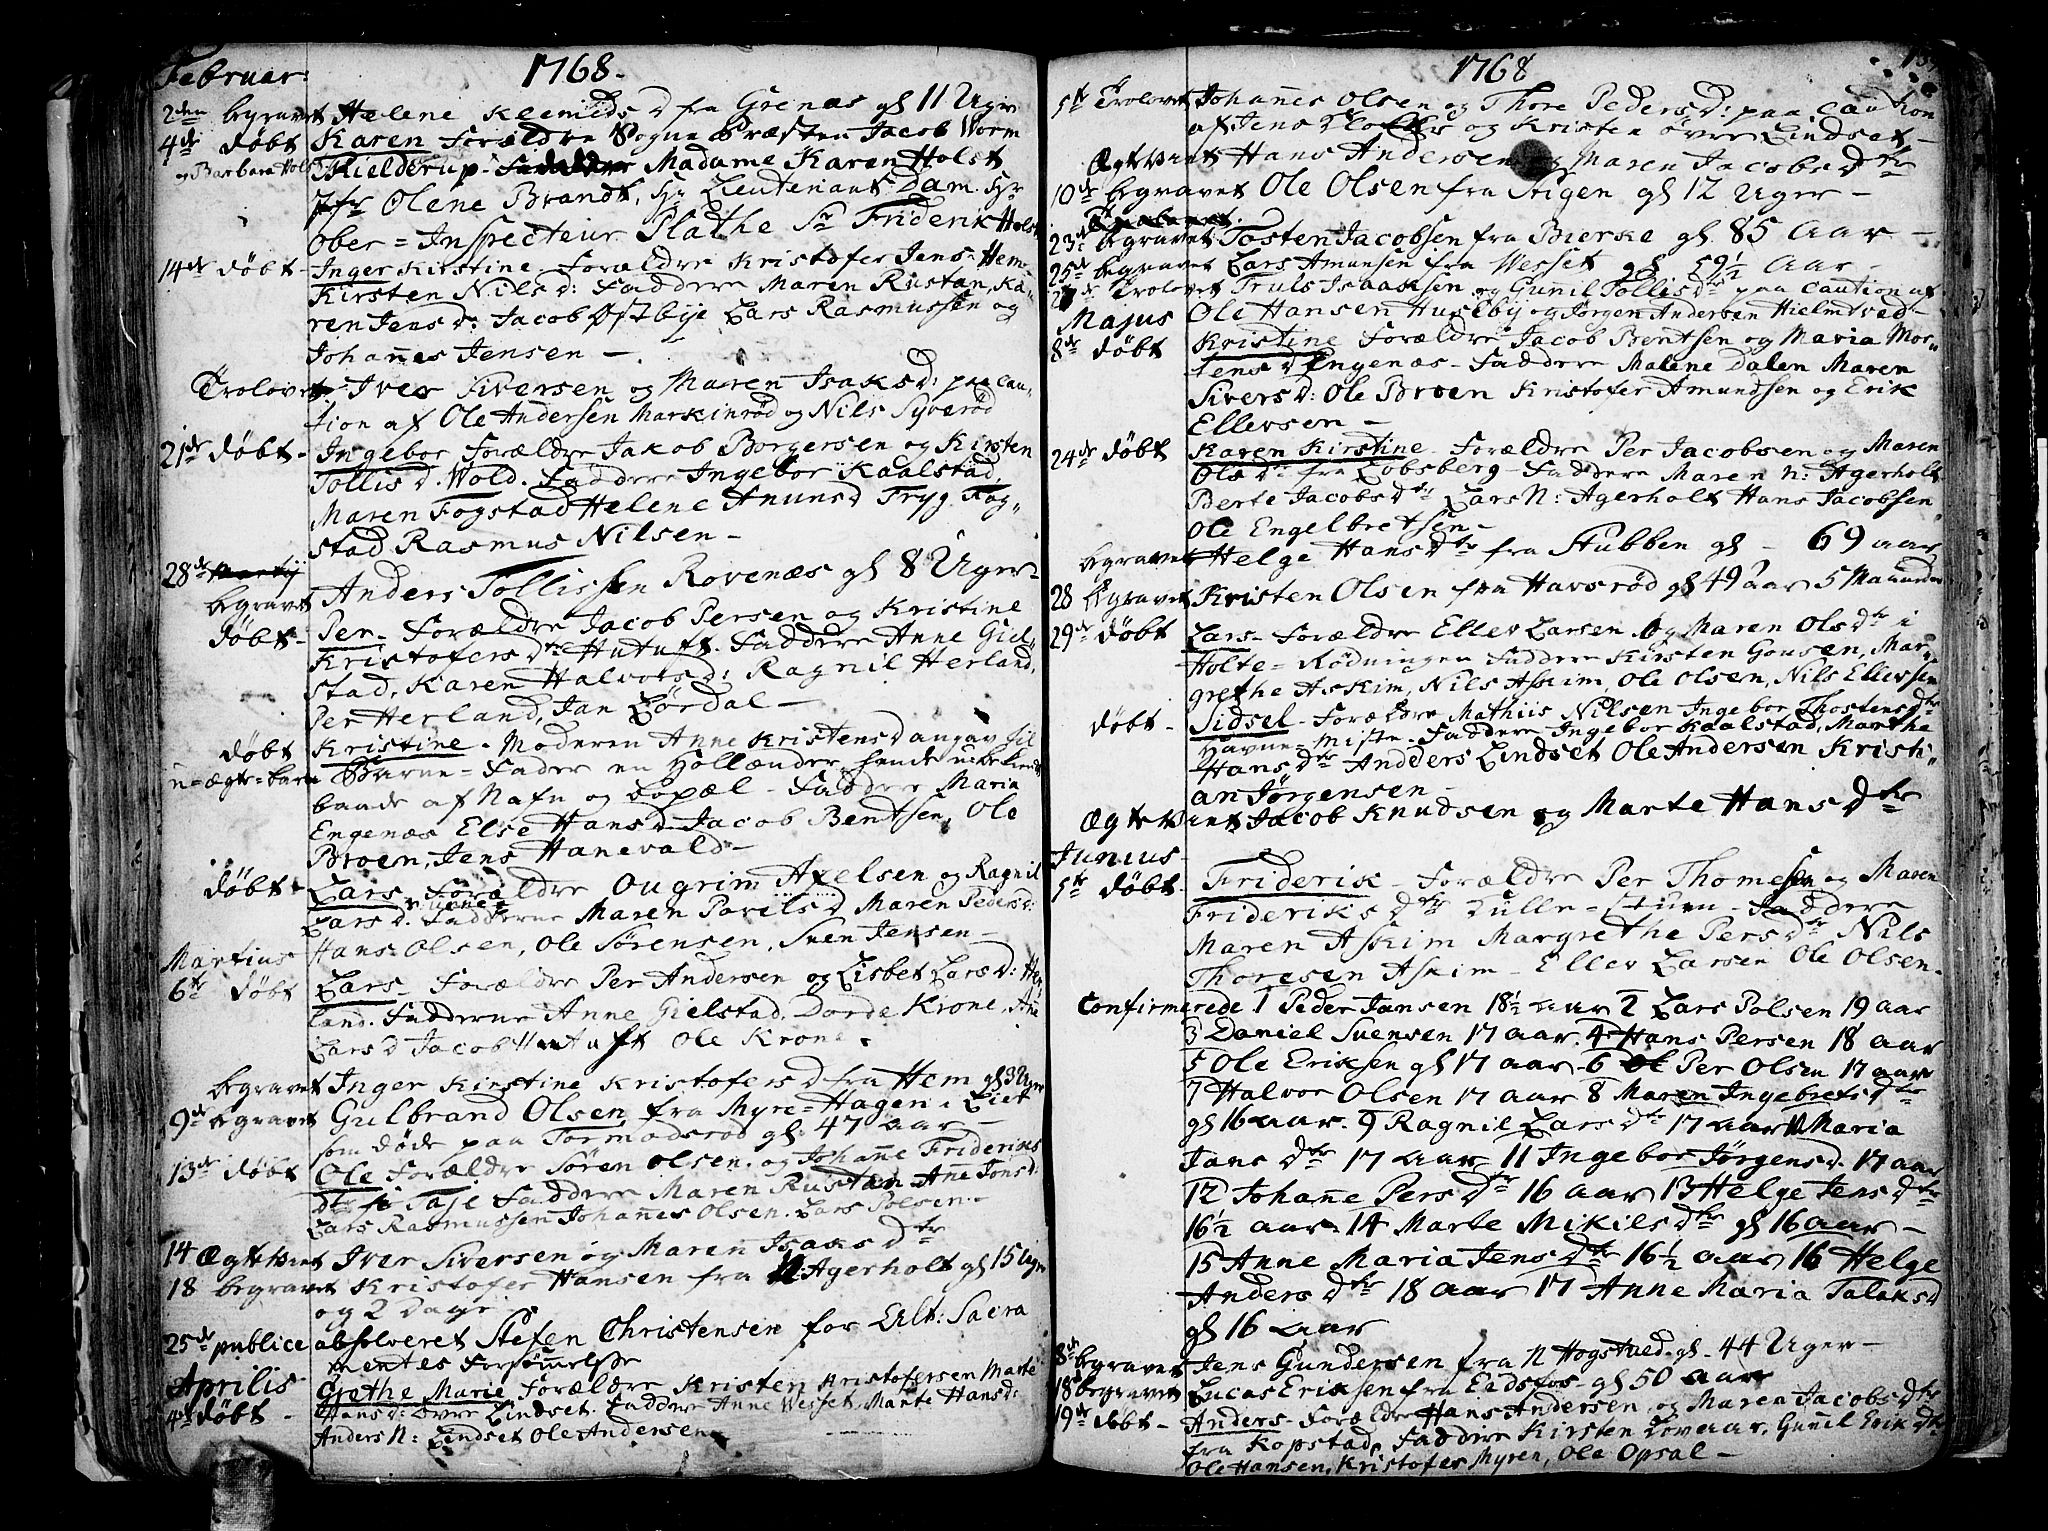 Februar: 1768.
2den begravet Helene Kleenids d fra Grenæs gl 11 Uger
4de døbt Karen Forældre Sogne Præsten Jacob Worm
og Barbara Holst Thielderup. Faddere Madame Karen Holst
Jfr Olene Brandt, Hr Lieutenant Dam. Hr
Ober=Inspecteur Plathe Sr Friderik Holst
14de døbt - Inger Kirstine. Forældre Kristofer Jens: Hem
Kirsten Nils d: Faddere Maren Rustan, Ka=
ren Jens d: Jacob Østbye Lars Rasmussen og
Johannes Jensen -
Trolovet Iver Siversen og Maren Isaks d: paa Cau=
tion af Ole Andersen Markinrød og Nils Syverød
21de døbt - Ingebor Forældre Jakob Borgersen og Kirsten
Tollis d. Wold. Faddere Ingebor Kaalstad,
Maren Fogstad Helene Amuns d Tryg Fog=
stad Rasmus Nilsen -
28de Martij
begravet Anders Tollissen Rovenæs gl 8 Uger -
døbt - Per - Forældre Jacob Persen og Kristine
Kristofers dtr Hutuft. Faddere Anne Giel=
stad, Karen Halvors d: Ragnil Herland,
Per Herland, Jan Lørdal -
døbt Kristine - Moderen Anne Kristens d angav til
u=ægte=barn Barne=Fader en Hollænder, hende ubekendt
baade af Nafn og Fadder Maria
Engenæs Else Hans d Jacob Bentsen, Ole
Broen, Jens Hanevald -
døbt - Lars Forældre Ougrim Axelsen og Ragnil
Lars d. Fadderne Maren Povils d Maren Peders d:
Hans Olsen, Ole Sørensen, Sven Jensen -
Martius
6te døbt Lars - Forældre Per Andersen og Lisbet Lars d: Her
land. Fadderne Anne Gielstad, Dorde Krone, Ane
Lars d Jacob Hutuft Ole Krone.
begravet Inger Kirstine Kristofers d fra Hem gl 3 Uger
9de begravet Gulbrand Olsen, fra Myre=Hagen i Eiet
som døde paa Tormodsrød gl: 47 Aar -
13de døbt Ole Forældre Søren Olsen. og Johanne Frideriks
Taje Faddere Maren Rustan Anne Jons d:
Lars Rasmussen Johannes Olsen. Lars Polsen -
14 Ægteviet Iver Siversen og Maren Isaks dtr
18 begravet Kristofer Hansen fra N Agerholt gl 15 Uger
og 2 Dage
25de publice absolveret Stefen Christensen for Sacra
mentes Forsømmelse
Aprilis Grethe Marie Forældre Kristen Kristofersen Marte
4de døbt - Hans d: Øvre Lindset. Faddere Anne Wesset, Marte Hans d:
Anders N: Lindset Ole Andersen
1768
5te Trolovet Johannes Olsen og Thore Peders d: paa Caution
af Jens og Kristen Øvre Lindset -
Ægteviet Hans Andersen og Maren Jacobs dtr
10de begravet Ole Olsen fra Stigen gl 12 Uger -
23de begravet Tosten Jacobsen fra Bierke gl. 85 Aar -
25de begravet Lars Amunsen fra Wesset gl 59½ Aar
Trolovet Truls Isaaksen og Gunnil Tollis dtr paa Caution af
Majus Ole Hansen Huseby og Jørgen Andersen Hielmtved -
8de døbt Kristine Forældre Jacob Bentsen og Maria Mor=
tens d Engenæs - Faddere Malene Dalen Maren
Sivers d: Ole Broen Kristofer Amundsen og Erik
Ellevsen -
24de døbt Karen Kirstine - Forældre Per Jacobsen og Maren
Ols dr fra Lobsberg - Faddere Maren N: Agerholt
Berte Jacobs dtr Lars N: Agerholt Hans Jacobsen,
Ole Engelbretsen -
begravet Helge Hans dtr fra Stubben gl - 69 aar
28 begravet Kristen Olsen fra Havsrød gl 49 aar 5 Maaneder
29de døbt Lars - Forældre Ellev Larsen og Maren Ols dtr i
Holte=Rødningen Faddere Kirsten Gousen, Mar=
grethe Askim, Nils Askim, Ole Olsen, Nils Ellevsen
døbt - Sidsel - Forældre Mathiis Nilsen Ingebor Thostens dtr
Havne=Miste. Faddere Ingebor Kaalstad, Marthe
Hans dtr Andders Lindset Ole Andersen Kristi=
an Jørgensen -
Ægteviet Jacob Knudsen og Marte Hans dtr
Junius
5te døbt - Friderik - Forældre Per Thomesen og Maren
Frideriks dtr Lulle=Stuen - Faddere
Maren Askim Margrethe Pers dtr Nils
Thoresen Askim - Ellev Larsen Ole Olsen -
Confirmerede 1 Peder Jansen 18½ aar 2 Lars Polsen 19 aar
3 Daniel Svensen 17 aar. 4 Hans Persen 18 aar
5 Ole Eriksen gl 17 aar - 6 Per Olsen 17 aar
7 Halvor Olsen 17 aar 8 Maren Ingebrets dtr
gl 16 aar. 9 Ragnil Lars dtr 17 aar 10 Maria
Jans dtr 17 aar 11 Ingebor Jørgens d. 17 aar
12 Johanne Pers dtr 16 aar 13 Helge Jens dtr
16½ aar. 14 Marte Mikils dtr gl 16 aar -
15 Anne Maria Jens dtr 16½ aar 16 Helge
Anders dtr 18 aar 17 Anne Maria Talaks d
gl 16 aar
8de begravet Jens Gundersen fra N Hogstued gl - 44 Uger -
18 begravet Lucas Eriksen fra Eidsfos - gl 50 aar
19de døbt - Anders - Forældre Hans Andersen, og Maren Jacobs dtr
fra Kopstad, Faddere Kirsten Lovaar, Gunnil Erik dtr
Ole Hansen, Kristofer Myren, Ole Opsal -